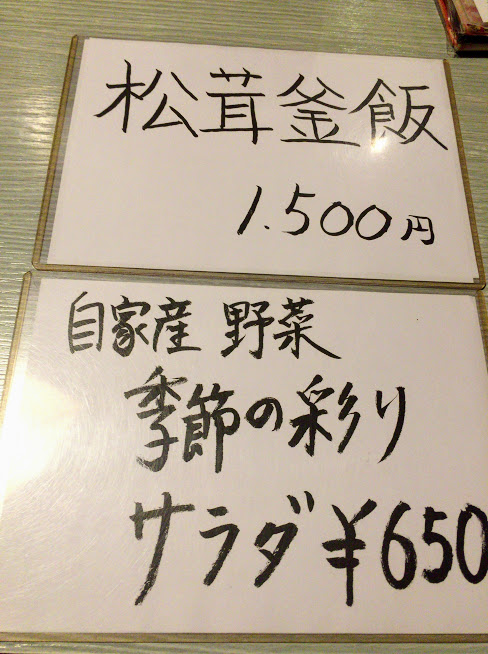 松茸釜飯
1.500円
自家産 野菜
季節の彩り
サラダ ¥650